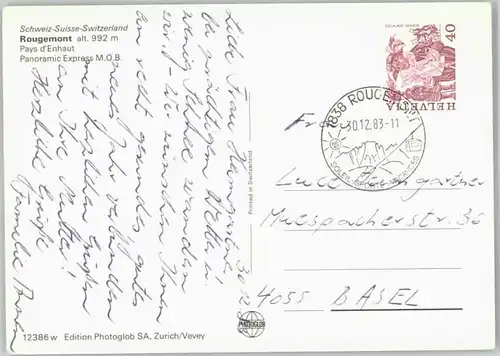 Schweiz-Suisse-Switzerland
Rougemont alt. 992 m
Pays d'Enhaut
Panoramic Express M.O.B.
30.12.83
Liebe Frau Heimgartner,
bei prächtigem Wetter u.
wenig Schnee wandern
wir u. wünschen Ihnen
ein recht gesundes, gutes
neues Jahr verbunden
mit herzlichen Grüssen
an Ihre Mutter.
Herzliche Grüsse
Familie
12386 w Edition Photoglob SA, Zurich/Vevey
Printed in Switzerland
PHOTOGLOB
ESCALADE GENEVE
HELVETIA 40
1838 ROUGEMONT
30.12.83-11
Frau
Luce Heimgartner
Muespacherstr. 36
4055 BASEL